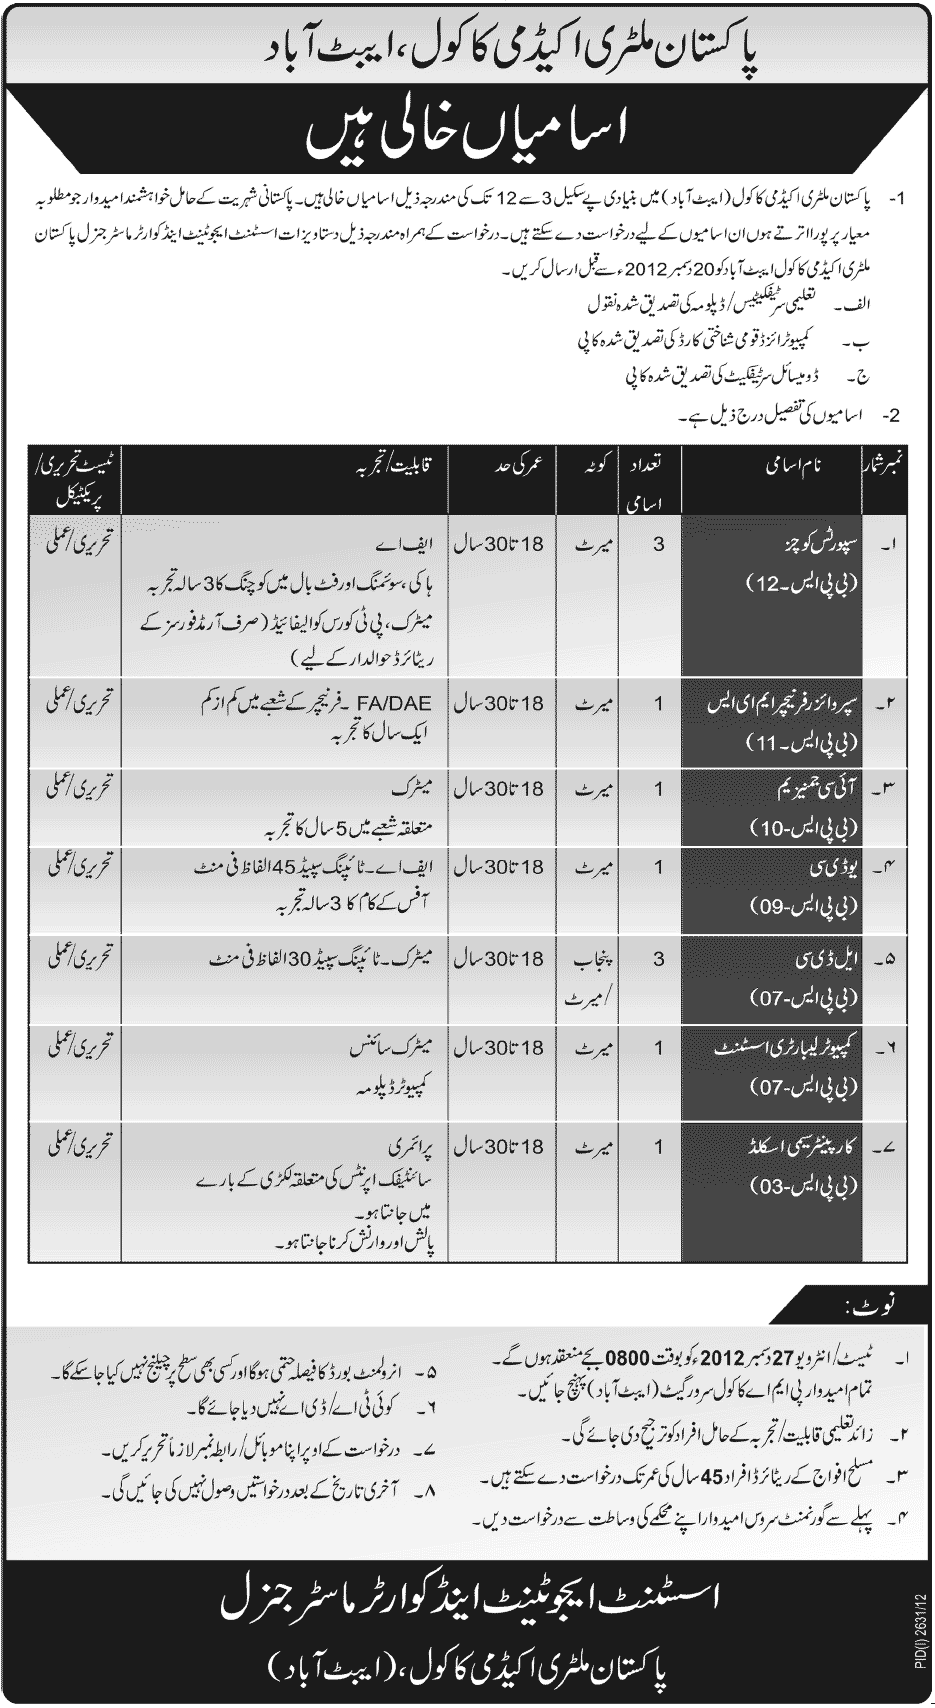 پاکستان ملٹری اکیڈمی کاکول، ایبٹ آباد
اسامیاں خالی ہیں
1- پاکستان ملٹری اکیڈمی کاکول (ایبٹ آباد) میں بنیادی پے سکیل 3 سے 12 تک کی مندرجہ ذیل اسامیاں خالی ہیں۔ پاکستانی شہریت کے حامل خواہشمند امیدوار جو مطلوبہ
معیار پر پورا اترتے ہوں ان اسامیوں کے لیے درخواست دے سکتے ہیں۔ درخواست کے ہمراہ مندرجہ ذیل دستاویزات اسسٹنٹ ایجوٹینٹ اینڈ کوارٹر ماسٹر جنرل پاکستان
ملٹری اکیڈمی کاکول ایبٹ آباد کو 20 دسمبر 2012ء سے قبل ارسال کریں۔
الف۔ تعلیمی سرٹیفکیٹس/ڈپلومہ کی تصدیق شدہ نقول
ب۔ کمپیوٹرائزڈ قومی شناختی کارڈ کی تصدیق شدہ کاپی
ج۔ ڈومیسائل سرٹیفکیٹ کی تصدیق شدہ کاپی
2- اسامیوں کی تفصیل درج ذیل ہے۔
نمبر شمار نام اسامی تعداد اسامی کوٹہ عمر کی حد قابلیت/تجربہ ٹیسٹ تحریری/پریکٹیکل
۱۔ سپورٹس کوچز 3 میرٹ 18 تا 30 سال ایف اے تحریری/عملی
(بی پی ایس۔12) ہاکی، سوئمنگ اور فٹ بال میں کوچنگ کا 3 سالہ تجربہ
میٹرک، پی ٹی کورس کوالیفائیڈ (صرف آرمڈ فورسز کے
ریٹائرڈ حوالدار کے لیے)
۲۔ سپروائزر فرنیچر ایم ای ایس 1 میرٹ 18 تا 30 سال FA/DAE ۔ فرنیچر کے شعبے میں کم از کم تحریری/عملی
(بی پی ایس۔11) ایک سال کا تجربہ
۳۔ آئی سی جمنیزیم 1 میرٹ 18 تا 30 سال میٹرک تحریری/عملی
(بی پی ایس-10) متعلقہ شعبے میں 5 سال کا تجربہ
۴۔ یو ڈی سی 1 میرٹ 18 تا 30 سال ایف اے۔ ٹائپنگ سپیڈ 45 الفاظ فی منٹ تحریری/عملی
(بی پی ایس-09) آفس کے کام کا 3 سالہ تجربہ
۵۔ ایل ڈی سی 3 پنجاب 18 تا 30 سال میٹرک۔ ٹائپنگ سپیڈ 30 الفاظ فی منٹ تحریری/عملی
(بی پی ایس-07) /میرٹ
۶۔ کمپیوٹر لیبارٹری اسسٹنٹ 1 میرٹ 18 تا 30 سال میٹرک سائنس تحریری/عملی
(بی پی ایس-07) کمپیوٹر ڈپلومہ
۷۔ کارپینٹر سیمی اسکلڈ 1 میرٹ 18 تا 30 سال پرائمری تحریری/عملی
(بی پی ایس-03) سائنٹیفک اپرنٹس کی متعلقہ لکڑی کے بارے
میں جانتا ہو۔
پالش اور وارنش کرنا جانتا ہو۔
نوٹ:
۱۔ ٹیسٹ/انٹرویو 27 دسمبر 2012ء کو بوقت 0800 بجے منعقد ہوں گے۔
تمام امیدوار پی ایم اے کاکول سرور گیٹ (ایبٹ آباد) پہنچ جائیں۔
۲۔ زائد تعلیمی قابلیت/تجربہ کے حامل افراد کو ترجیح دی جائے گی۔
۳۔ مسلح افواج کے ریٹائرڈ افراد 45 سال کی عمر تک درخواست دے سکتے ہیں۔
۴۔ پہلے سے گورنمنٹ سروس امیدوار اپنے محکمے کی وساطت سے درخواست دیں۔
۵۔ انرولمنٹ بورڈ کا فیصلہ حتمی ہوگا اور کسی بھی سطح پر چیلنج نہیں کیا جا سکے گا۔
۶۔ کوئی ٹی اے/ڈی اے نہیں دیا جائے گا۔
۷۔ درخواست کے اوپر اپنا موبائل/رابطہ نمبر لازماً تحریر کریں۔
۸۔ آخری تاریخ کے بعد درخواستیں وصول نہیں کی جائیں گی۔
اسسٹنٹ ایجوٹینٹ اینڈ کوارٹر ماسٹر جنرل
پاکستان ملٹری اکیڈمی کاکول، (ایبٹ آباد)
PID(I) 2631/12